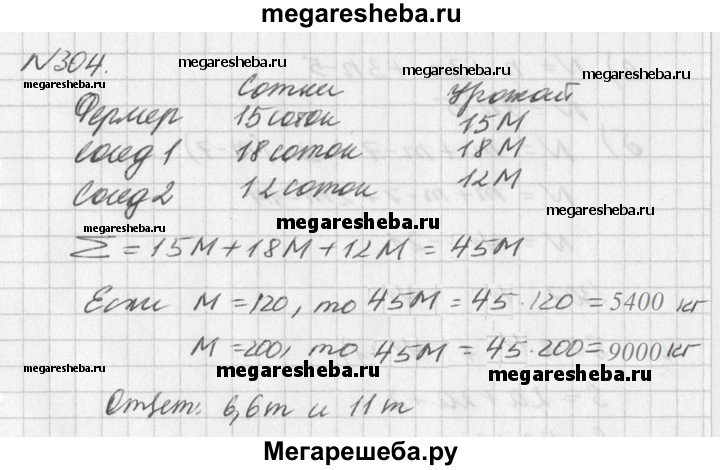 megaresheba.ru
N304.
megaresheba.ru
Сотки megaresheba.ru Урожай megaresheba.ru
Фермер 15 соток 15м
сосед 1 18 соток 18м
сосед 2 12 соток 12м
megaresheba.ru megaresheba.ru megaresheba.ru
Σ = 15м + 18м + 12м = 45м
Если м = 120, то 45м = 45·120 = 5400 кг
м = 200, то 45м = 45·200 = 9000 кг
megaresheba.ru megaresheba.ru megaresheba.ru
Ответ. 6,6т и 11т
Мегарешеба.ру